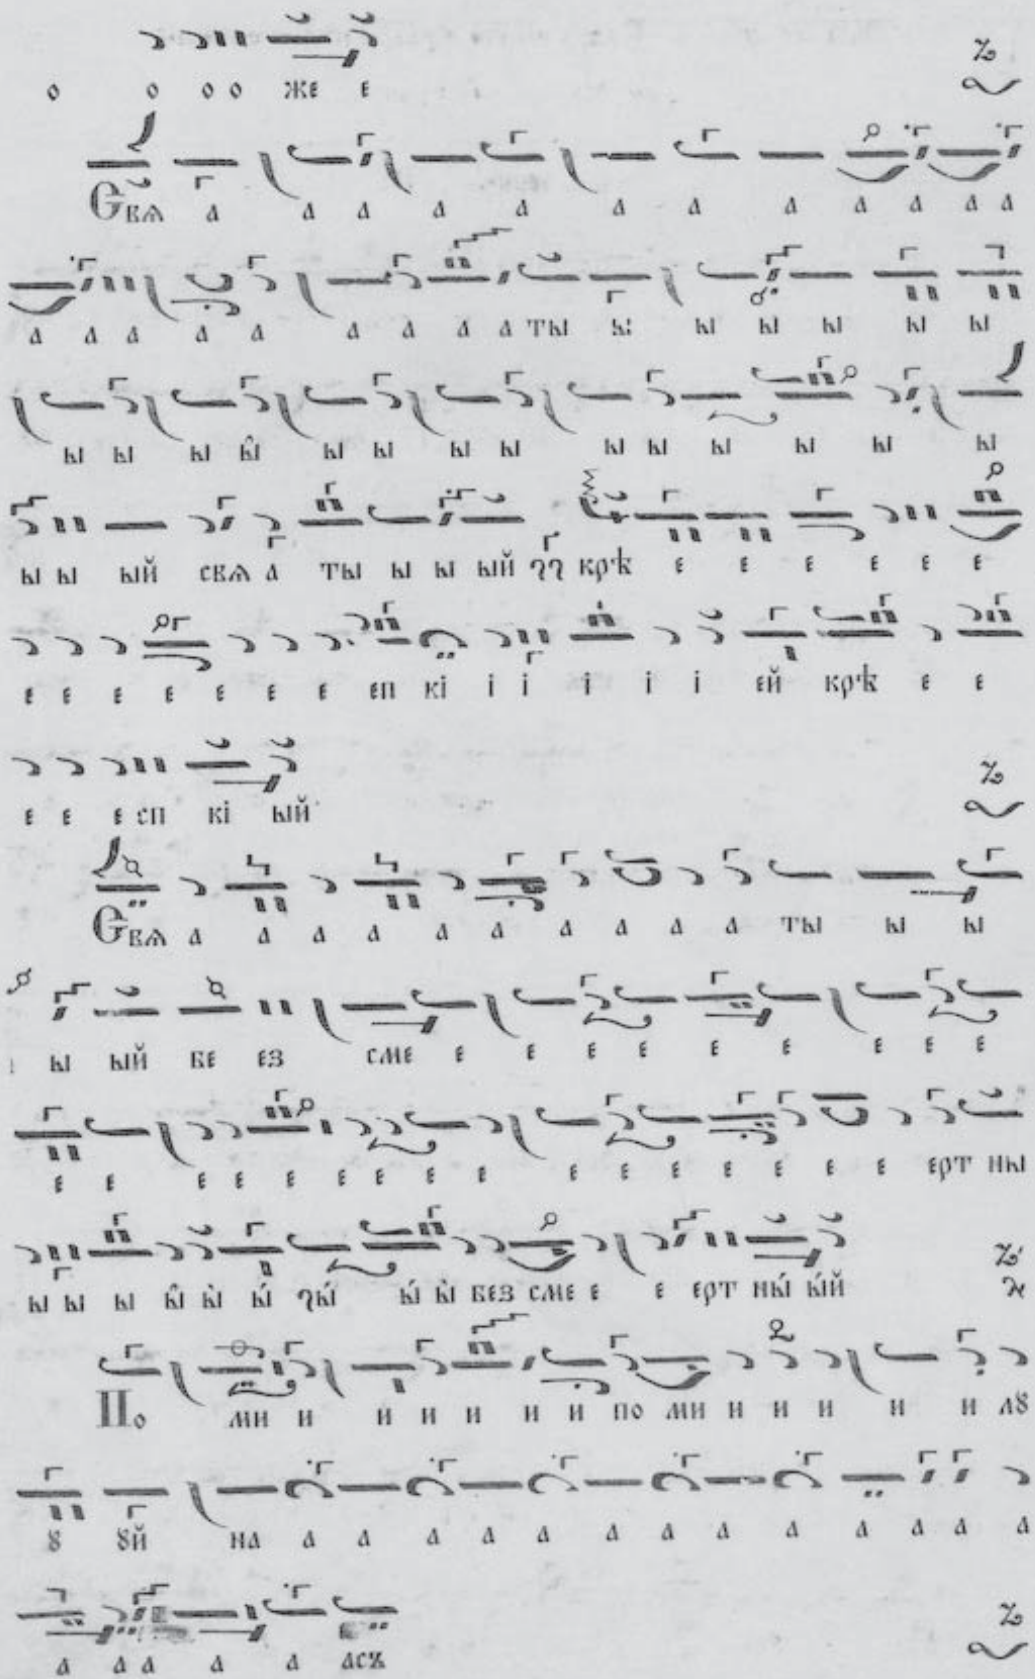 о о о о же е
Свѧ а а а а а а а а а а а а
а а а а а а а а а ты ы ы ы ы ы ы
ы ы ы ы̑ ы ы ы ы ы ы ы ы ы ы
ы ы ый свѧ а ты ы ы ый крѣ е е е е е е
е е е е е е е еп кі і і і і і ей крѣ е е
е е е сп кі ый
Свѧ а а а а а а а а а а ты ы ы
ы ый бе ез сме е е е е е е е е е
е е е е е е е е е е е е е е е е ерт ны
ы ы ы ы̑ ы̀ ы́ ы́ ы́ ы̀ без сме е е ерт ны́ ы́й
По ми и и и и и и по ми и и и и и лꙋ
ꙋ ꙋй на а а а а а а а а а а а а
а а а а а асъ